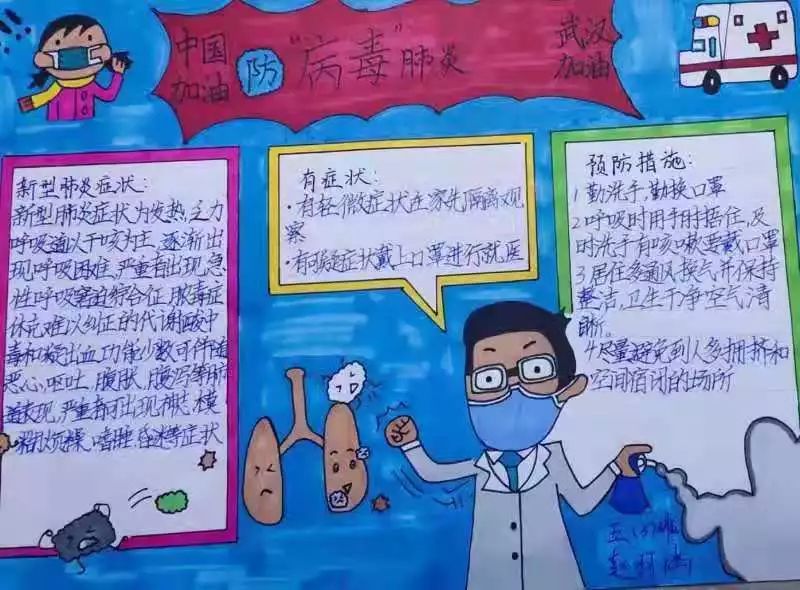 中国
加油
防"病毒"肺炎
武汉
加油
新型肺炎症状:
新型肺炎症状为发热,乏力
呼吸道以干咳为主,逐渐出
现呼吸困难,严重有出现急
性呼吸窘迫综合征,脓毒症
休克难以纠正的代谢酸中
毒和凝出血功能少数可伴随
恶心,呕吐,腹胀,腹泻等
表现,严重者可出现神志模
糊烦躁,嗜睡,昏迷等症状
有症状:
·有轻微症状在家先隔离观
察
·有强症状戴上口罩进行就医
预防措施:
1 勤洗手,勤换口罩
2 呼吸时用手肘捂住,及
时洗手有咳嗽要戴口罩
3 居住多通风换气并保持
整洁,卫生干净空气清
晰。
4 尽量避免到人多拥挤和
空间密闭的场所